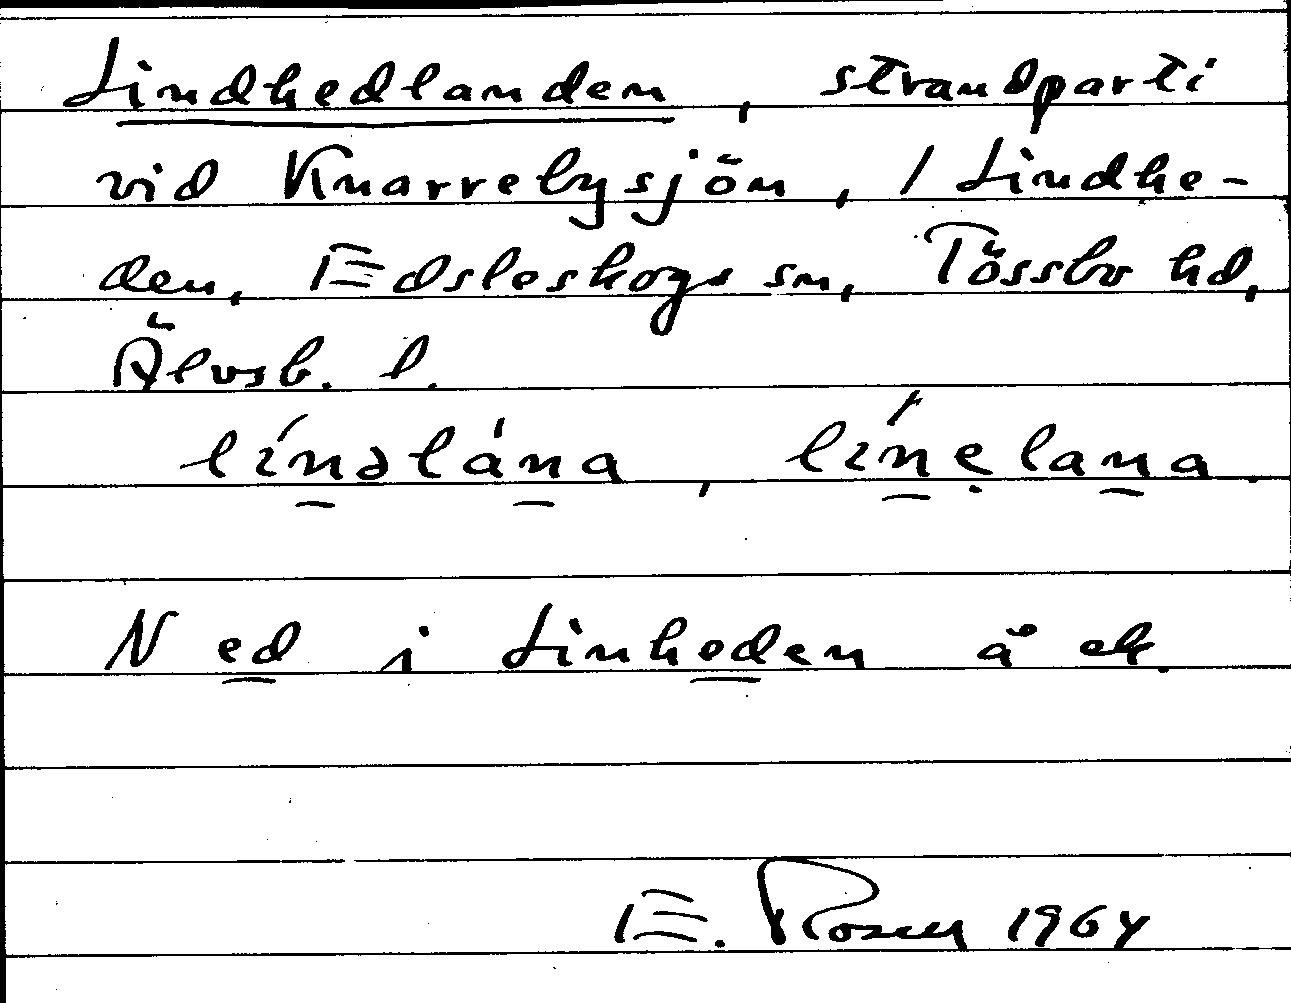 Lindhedlanden, strandparti
vid Knarrebysjön, / Lindhe-
den, Edsleskogs sn, Tössbo hd,
Älvsb. l.
línəlána, línẹlana.
Ned i Linheden å ek.
E. Rosen 1964